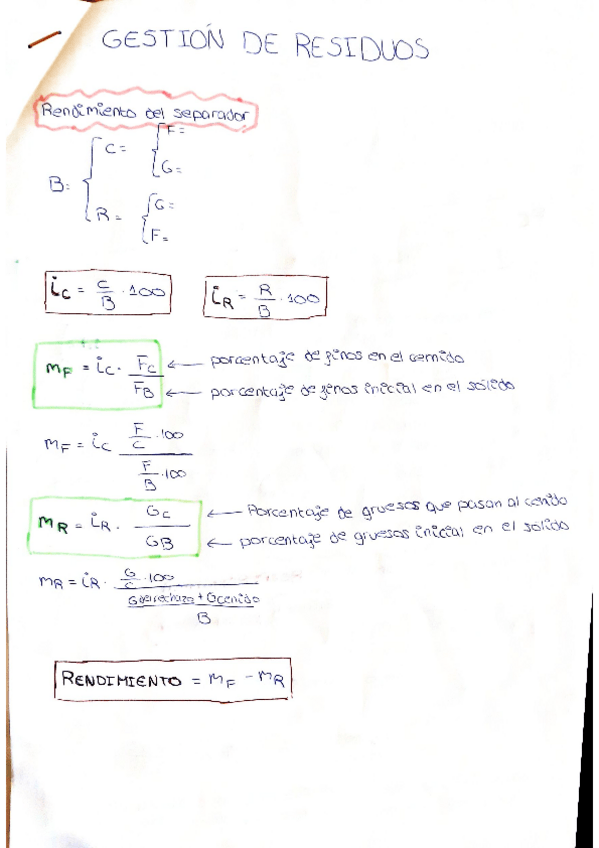 GESTIÓN DE RESIDUOS
Rendimiento del separador
B: { C = { F =
G =
R = { G =
F =
i_C = C/B · 100
i_R = R/B · 100
m_F = i_C · F_C / F_B
← porcentaje de finos en el cernido
← porcentaje de finos inicial en el sólido
m_F = i_C (F/C · 100) / (F/B · 100)
m_R = i_R · G_C / G_B
← Porcentaje de gruesos que pasan al cernido
← porcentaje de gruesos inicial en el sólido
m_R = i_R · (G/C · 100) / ((G rechazo + G cernido) / B)
RENDIMIENTO = m_F - m_R